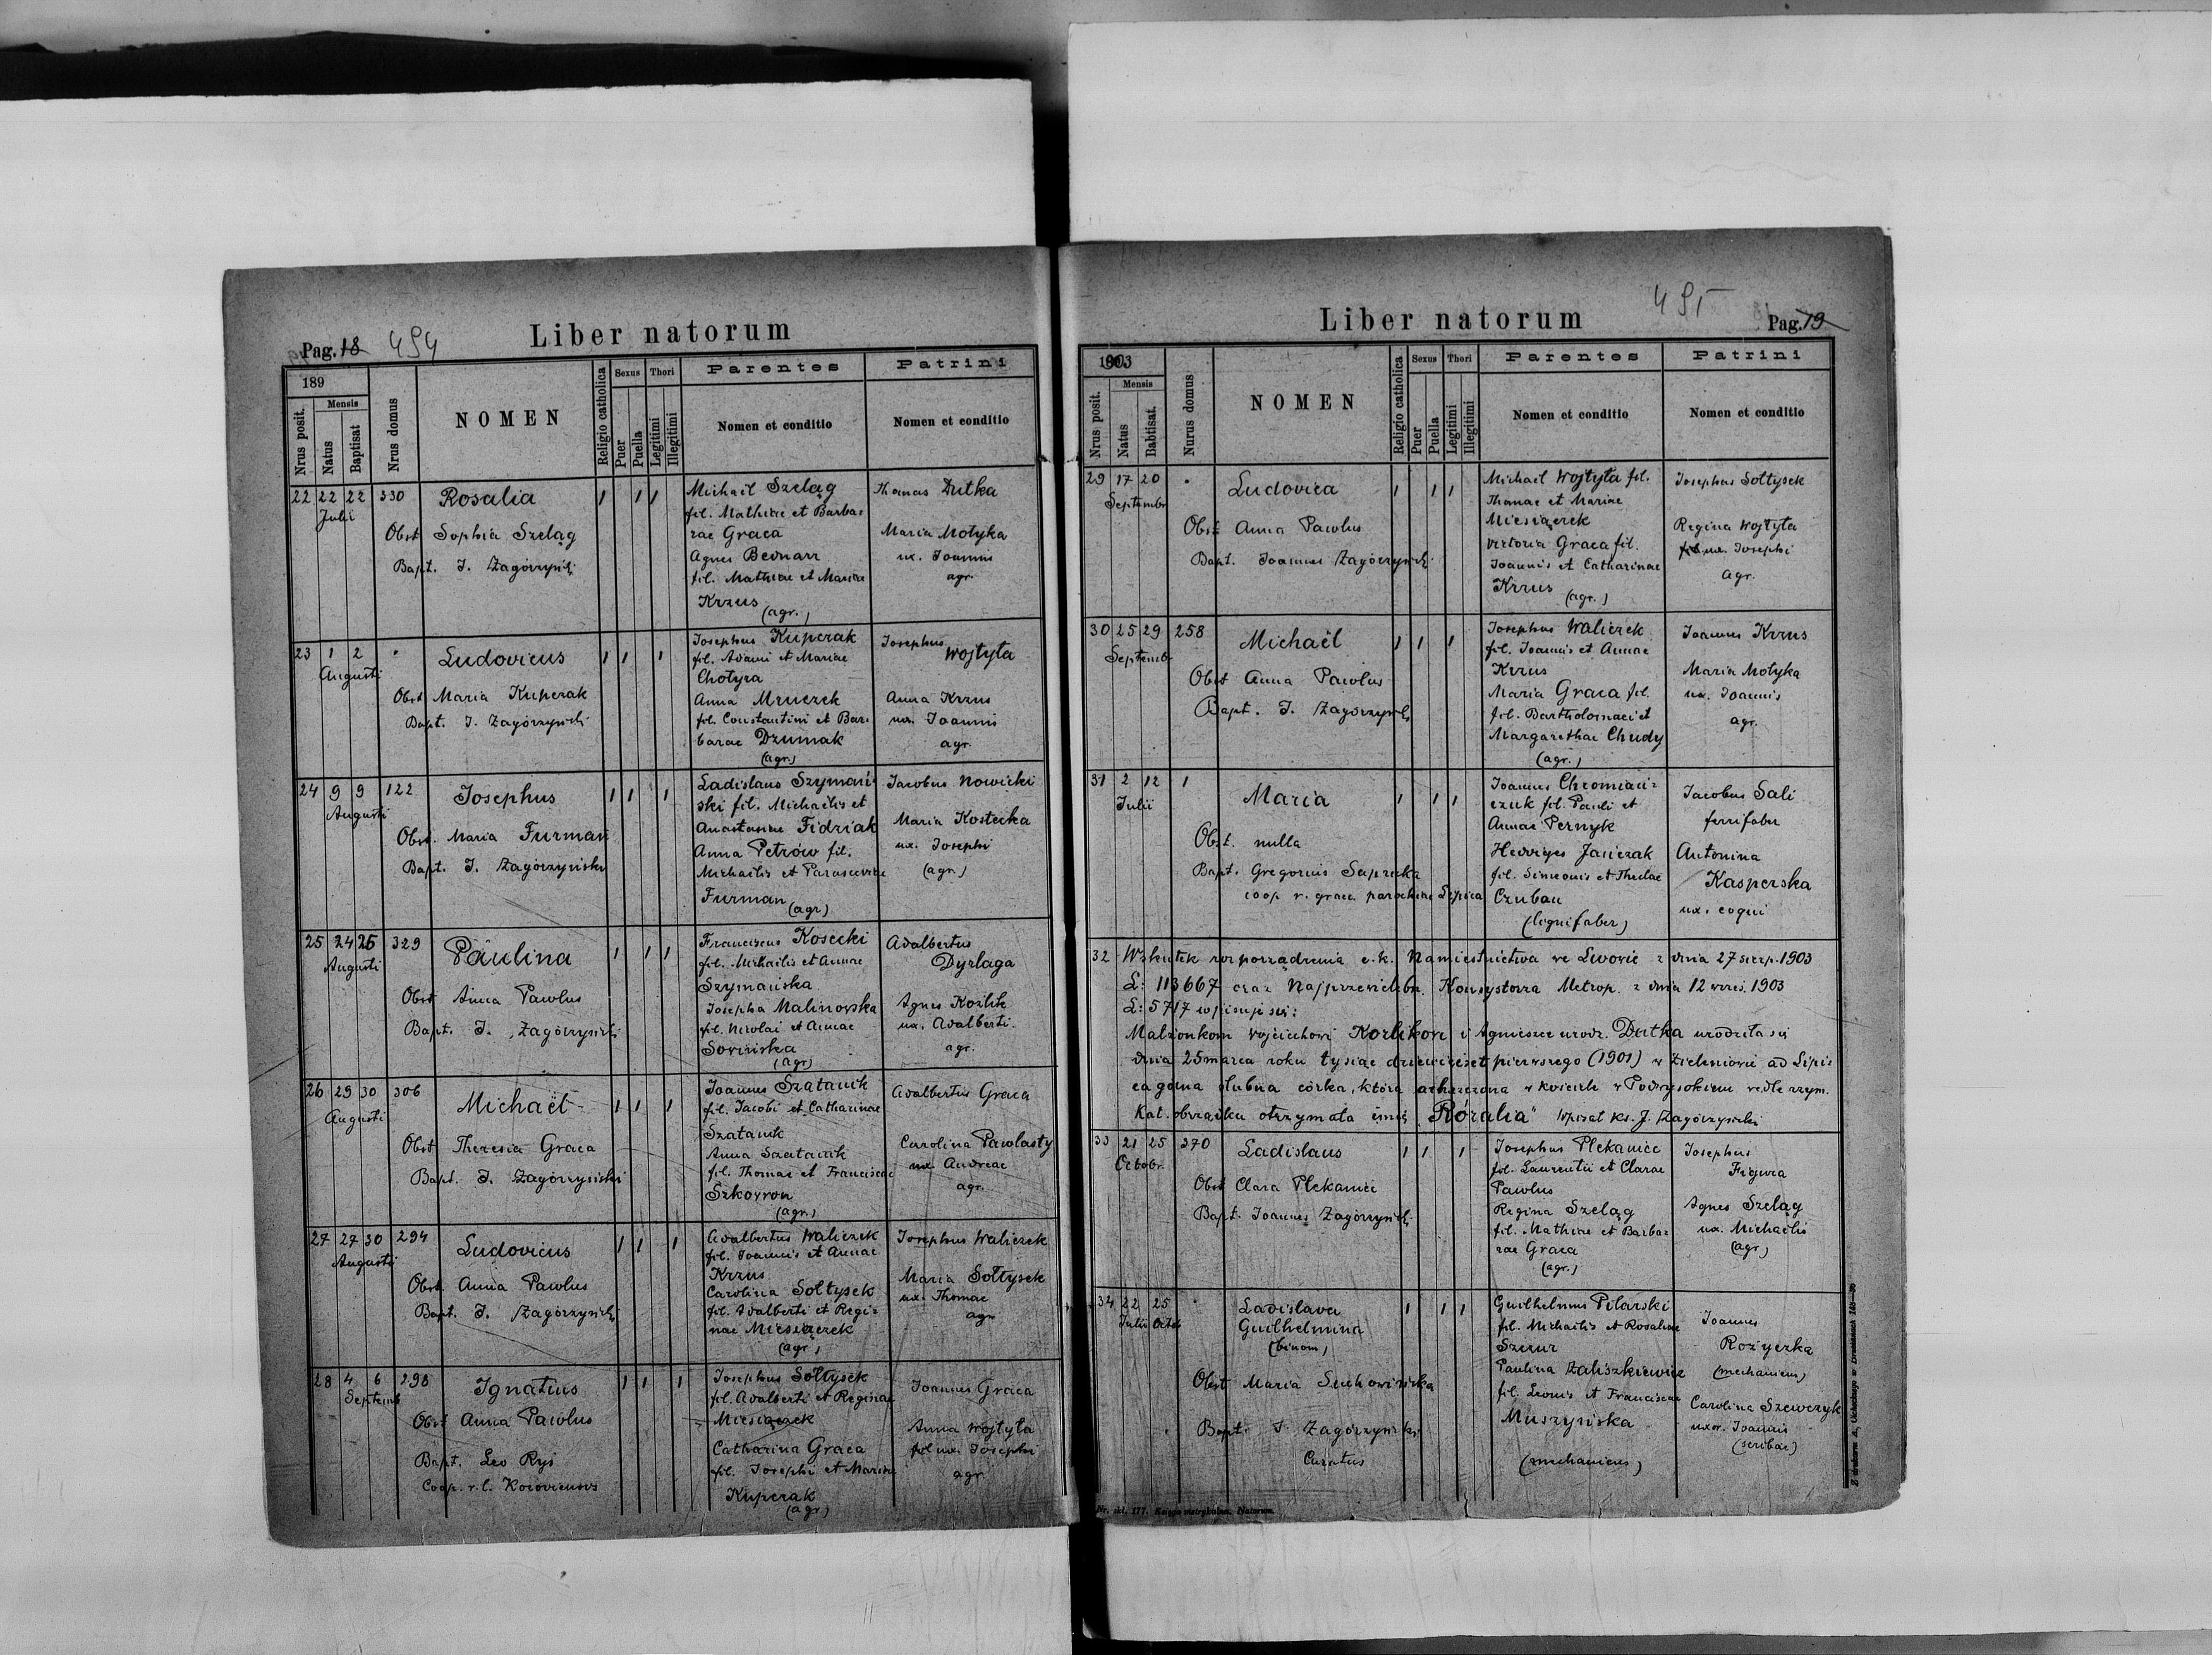 Pag. 18 494
Liber natorum
189
Nrus posit.
Mensis
Natus
Baptisat
Nrus domus
NOMEN
Religio catholica
Sexus
Puer
Puella
Thori
Legitimi
Illegitimi
Parentes
Nomen et conditio
Patrini
Nomen et conditio
22 22 22 330 Rosalia 1 1 1
Julii
Obst Sophia Szeląg
Bapt. J. Zagórzyński
Michaël Szeląg
fil. Mathiae et Barba=
rae Graca
Agnes Bednarz
fil. Mathiae et Mariae
Krzus
(agr.)
Thomas Dutka
Maria Motyka
ux. Joannis
agr.
23 1 2 " Ludovicus 1 1 1
Augusti
Obst Maria Kuperak
Bapt. J. Zagórzyński
Josephus Kuperak
fil. Adami et Mariae
Chotyra
Anna Mruczek
fil. Constantini et Bar=
barae Dzumak
(agr.)
Josephus
Wojtyła
Anna Krzus
ux. Joannis
agr.
24 9 9 122 Josephus 1 1 1
Augusti
Obst. Maria Furman
Bapt. J. Zagórzyński
Ladislaus Szymań=
ski fil. Michaëlis et
Anastasiae Fidziak
Anna Petrów fil.
Michaëlis et Parasceviae
Furman
(agr)
Jacobus Nowicki
Maria Kostecka
ux. Josephi
(agr.)
25 24 25 329 Paulina 1 1 1
Augusti
Obst Anna Pawlus
Bapt. J. Zagórzyński
Franciscus Kosecki
fil. Michaëlis et Annae
Szymańska
Josepha Malinowska
fil. Nicolai et Annae
Sovińska
(agr)
Adalbertus
Dyrlaga
Agnes Kozlik
ux. Adalberti.
agr.
26 29 30 306 Michaël 1 1 1
Augusti
Obst Theresia Graca
Bapt. J. Zagórzyński
Joannes Szatanik
fil. Jacobi et Catharinae
Szatanik
Anna Szatanik
fil. Thomae et Franciscae
Szkovron
(agr.)
Adalbertus Graca
Carolina Pawlasty
ux. Andreae
agr.
27 27 30 294 Ludovicus 1 1 1
Augusti
Obst. Anna Pawlus
Bapt. J. Zagórzyński
Adalbertus Waliczek
fil. Joannis et Annae
Krzus
Carolina Sołtysek
fil. Adalberti et Regi=
nae Miesiączek
(agr.)
Josephus Waliczek
Maria Sołtysek
ux. Thomae
agr
28 4 6 298 Ignatius 1 1 1
Septemb
Obst Anna Pawlus
Bapt. Leo Ryś
Coop. r. l.
Josephus Sołtysek
fil. Adalberti et Reginae
Miesiączek
Catharina Graca
fil. Josephi et Mariae
Kuperak
(agr)
Joannes Graca
Anna Wojtyła
fil ux. Josephi
agr
Liber natorum
495
Pag. 19
1903
Nrus posit.
Mensis
Natus
Babtisat.
Nurus domus
NOMEN
Religio catholica
Sexus
Puer
Puella
Thori
Legitimi
Illegitimi
Parentes
Nomen et conditio
Patrini
Nomen et conditio
29 17 20 " Ludovica 1 1 1
Septembr
Obst Anna Pawlus
Bapt. Joannes Zagórzyński
Michaël Wojtyła fil.
Thomae et Mariae
Miesiączek
Victoria Graca fil.
Joannis et Catharinae
Krzus (agr.)
Josephus Sołtysek
Regina Wojtyła
fil ux. Josephi
agr.
30 25 29 258 Michaël 1 1 1
Septemb
Obst Anna Pawlus
Bapt. J. Zagórzyński
Josephus Waliczek
fil. Joannis et Annae
Krzus
Maria Graca fil.
fil. Bartholomaei et
Margarethae Chudy
(agr.)
Joannes Krzus
Maria Motyka
ux. Joannis
agr.
31 2 12 1 Maria 1 1 1
Julii
Obst. nulla
Bapt. Gregorius Sapruka
coop r. graec. parochiae Lipica
Joannes Chromiań=
czuk fil. Pauli et
Annae Pernyk
Hedviges Jasiczak
fil. Simeonis et Theclae
Czuban
(lignifaber)
Jacobus Sali
ferrifaber
Antonina
Kasperska
ux. coqui
32 Wskutek rozporządzenia c. k. Namiestnictwa we Lwowie z dnia 27 sierp. 1903
L: 113667 oraz Najprzewieleb. Konsystorza Metrop. z dnia 12 wrześ. 1903
L: 5717 wpisuje się:
Małżonkom Wojciechowi Kozlikow i Agnieszce urodz. Dutka urodziła się
dnia 25 marca roku tysiąc dziewięćset pierwszego (1901) w Zieleniowie ad Lipi=
ca gdina ślubna córka, która ochrzczona w kościele w Podwysokiem vedle rzym.
Kat. obrządku otrzymała imię "Rozalia" Wpisał ks. J. Zagórzyński
33 21 25 270 Ladislaus 1 1 1
Octobr.
Obst Clara Plekaniec
Bapt. Joannes Zagórzyński
Josephus Plekaniec
fil. Laurentii et Clarae
Pawlus
Regina Szeląg
fil. Mathiae et Barba=
rae Graca
(agr.)
Josephus
Figura
Agnes Szeląg
ux. Michaëlis
(agr)
34 22 25 " Ladislava 1 1 1
Julii Octob
Guilhelmina
(binom)
Obst Maria Suchowirska
Bapt. J. Zagórzyński
Curatus
Guilhelmus Pilarski
fil. Michaëlis et Rosaliae
Szmur
Paulina Zaliszkiewicz
fil. Leonis et Franciscae
Muszyńska
(mechanicus)
Joannes
Rożyczka
(mechanicus)
Carolina Szewczyk
uxor. Joannis
(scribae)
Nr. skl. 177. Księga metrykalna. Natorum.